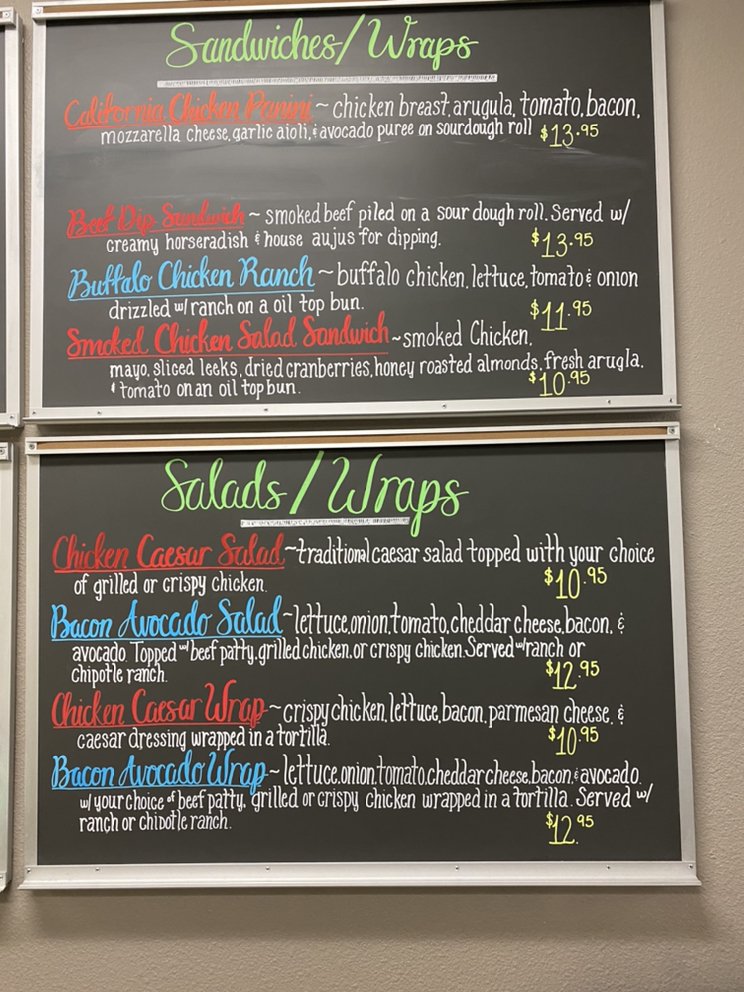 Sandwiches/Wraps
California Chicken Panini ~ chicken breast, arugula, tomato, bacon,
mozzarella cheese, garlic aioli, & avocado puree on sourdough roll $13.95
Beef Dip Sandwich ~ smoked beef piled on a sour dough roll. Served w/
creamy horseradish & house aujus for dipping. $13.95
Buffalo Chicken Ranch ~ buffalo chicken, lettuce, tomato & onion
drizzled w/ ranch on a oil top bun. $11.95
Smoked Chicken Salad Sandwich ~ smoked Chicken,
mayo, sliced leeks, dried cranberries, honey roasted almonds, fresh arugla,
& tomato on an oil top bun. $10.95
Salads/Wraps
Chicken Caesar Salad ~ traditional caesar salad topped with your choice
of grilled or crispy chicken. $10.95
Bacon Avocado Salad ~ lettuce, onion, tomato, cheddar cheese, bacon, &
avocado. Topped w/ beef patty, grilled chicken, or crispy chicken. Served w/ ranch or
chipotle ranch. $12.95
Chicken Caesar Wrap ~ crispy chicken, lettuce, bacon, parmesan cheese, &
caesar dressing wrapped in a tortilla. $10.95
Bacon Avocado Wrap ~ lettuce, onion, tomato, cheddar cheese, bacon, & avocado.
w/ your choice of beef patty, grilled or crispy chicken wrapped in a tortilla. Served w/
ranch or chipotle ranch. $12.95